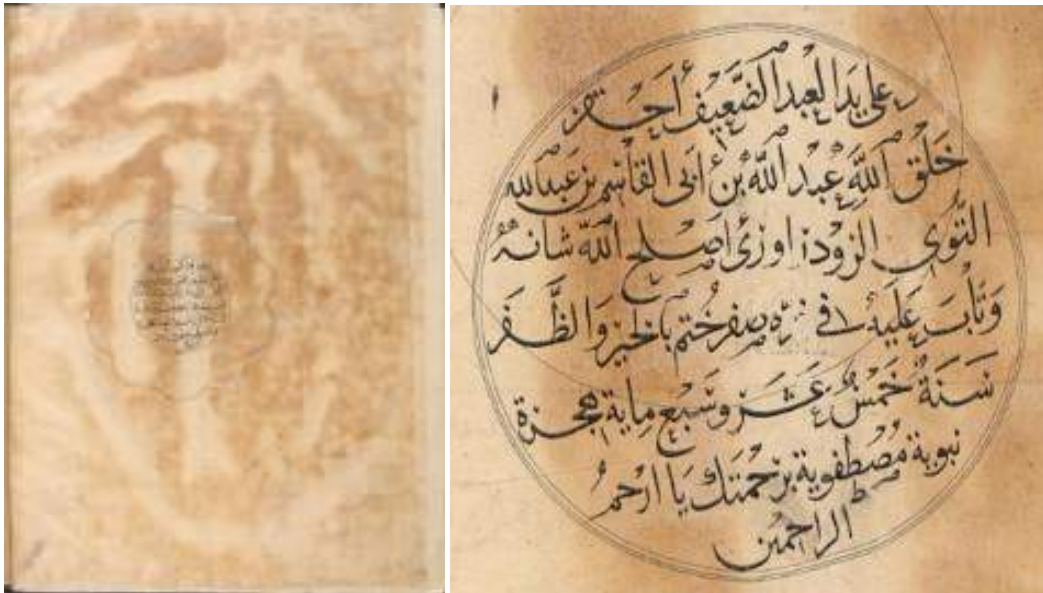 على يد العبد الضَّعِيف أحقر
خَلق الله عبد الله بن أبى القاسم بن عبد الله
التُّوى الزوذراوزى اصلح الله شانه
وتاب عليه فى غرّه صفر ختم بالخير والظَّفَر
سَنَةَ خَمْسَ عَشَر وسَبْع ماية هجرة
نبوية مُصْطفوية برَحْمتك يا ارحم
الراحمين